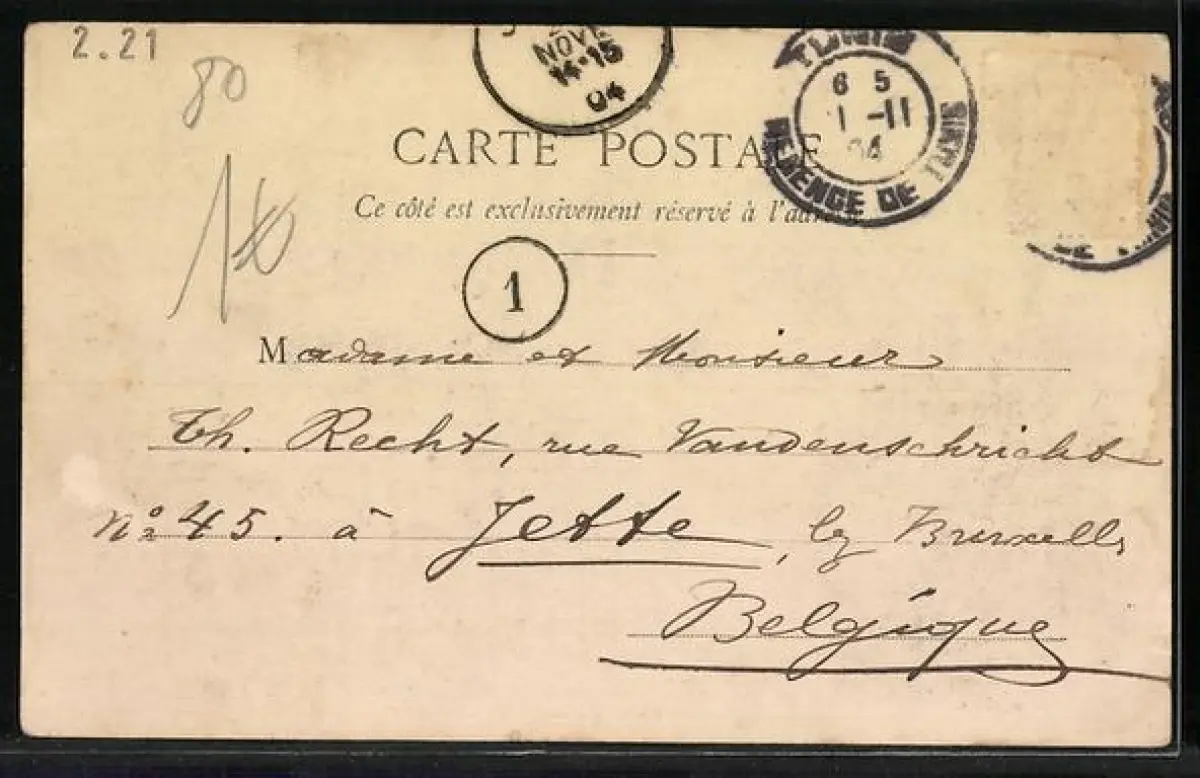 2.21
80
NOVE
14-15
04
TUNIS
6 5
1 -11
04
REGENCE DE TUNIS
CARTE POSTALE
Ce côté est exclusivement réservé à l'adresse
1
Madame et Monsieur
Th. Recht, rue Vandenschricht
No 45. à Jette, lez Bruxelles
Belgique